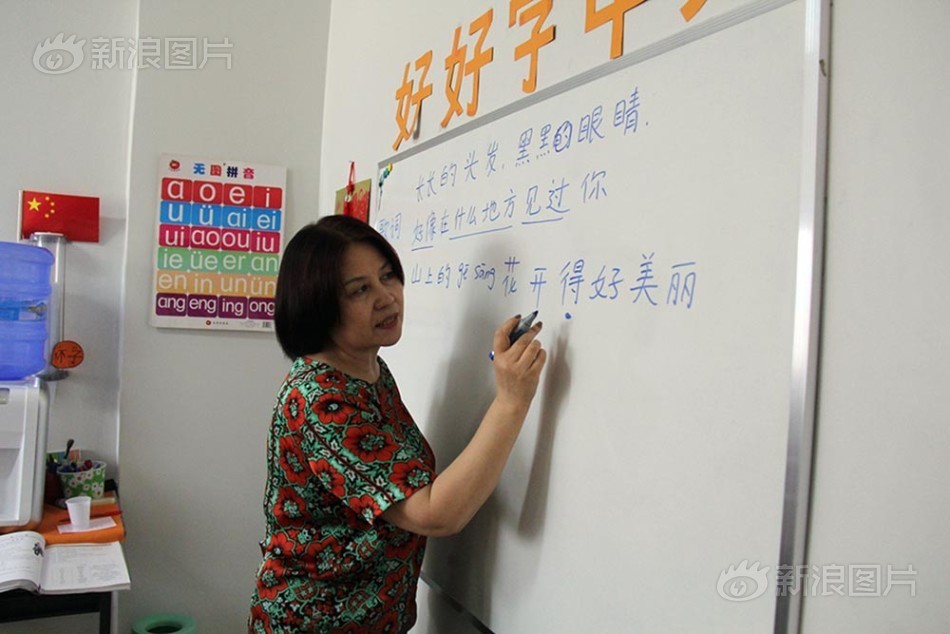 新浪图片
好好学中文
无图拼音
a o e i
u ü ai ei
ui ao ou iu
ie üe er an
en in un ün
ang eng ing ong
长长的头发,黑黑的眼睛.
歌词 好像在什么地方见过你
山上的 gē sāng 花开得好美丽
杯子
新浪图片